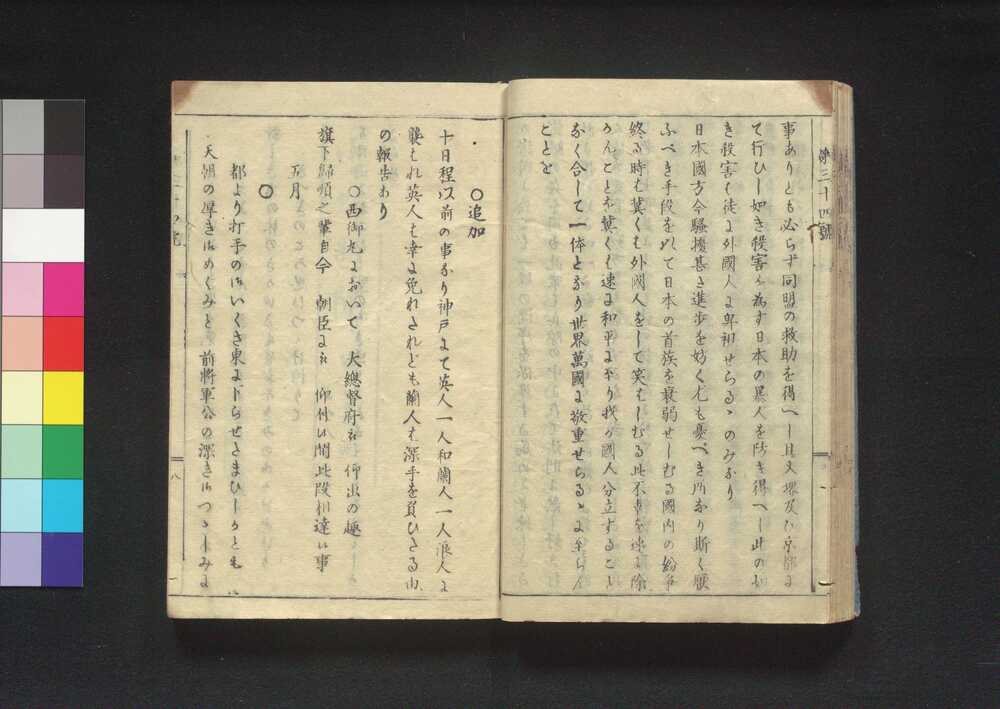 事ありとも必らず同明の救助を得へし且又堺及ひ京都に
て行ひし如き殺害を為す日本の悪人を防き得へし此のお
き殺害の徒に外國人に卑視せらるゝのみなり
日本國方今騒擾甚き進歩を妨く尤も憂べき所なり斯く厭
ふべき手段を以て日本の首族を衰弱せしむる國内の紛争
終る時も冀くも外國人をして笑はしむる此不幸を速に除
かんことを冀くも速に和平に至り我が國人分立すること
なく合して一体となり世界萬國に敬重せらるゝに至らん
ことを
第三十四號
○追加
十日程以前の事なり神戸にて英人一人和蘭人一人浪人に
襲はれ英人は幸に免れされども蘭人は深手を負ひたる由
の報告あり
○西御丸において 大總督府ゟ仰出の趣
旗下歸順之輩自今 朝臣に被 仰付候間此段相達候事
五月
○
都より打手の御いくさ東に下らせたまひしかとも
天朝の厚き御めぐみと 前將軍公の深き御つゝしみに
八